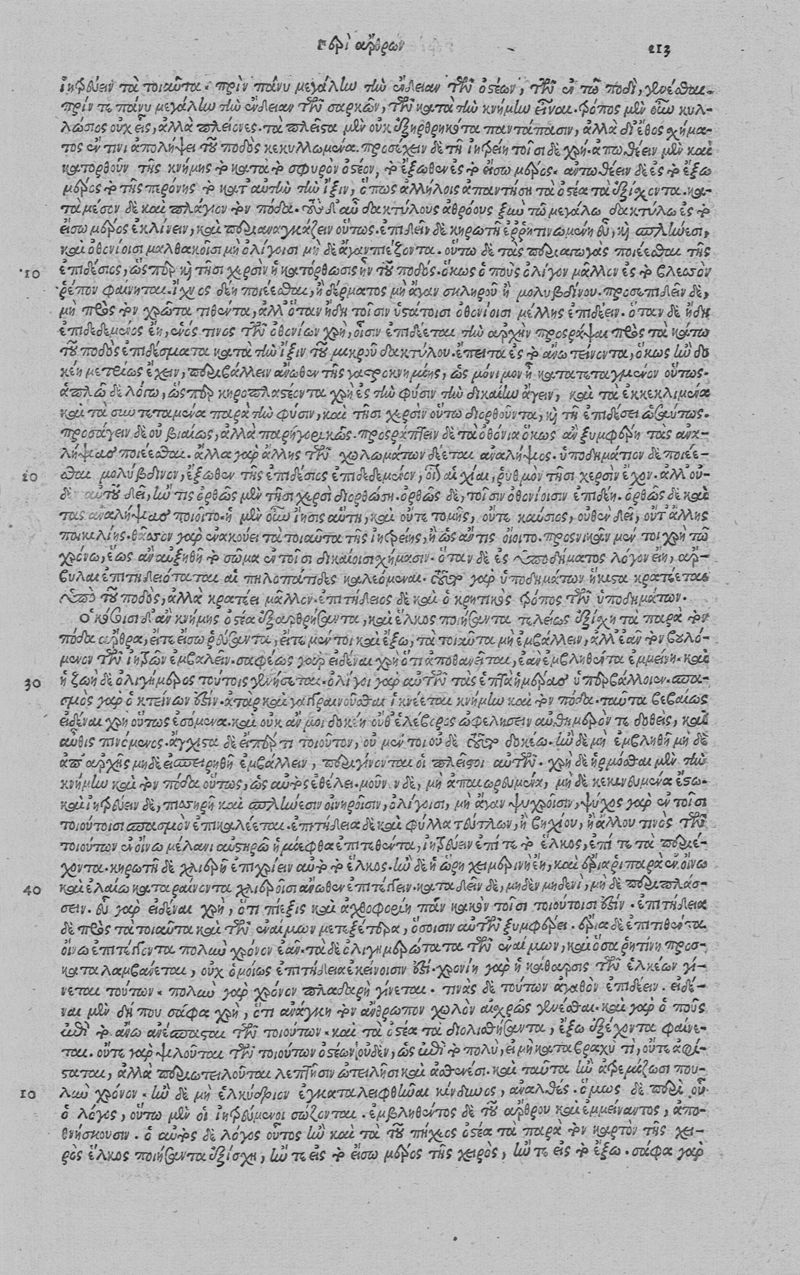 περὶ ἄρθρων 213
ἰητρεύειν τὰ τοιαῦτα. πρὶν πάνυ μεγάλην τὴν ἔνδειαν τῶν ὀστέων, τῶν ἐν τῷ ποδὶ, γενέσθαι.
πρίν τε πάνυ μεγάλην τὴν ἔνδειαν τῶν σαρκῶν, τῶν κατὰ τὴν κνήμην εἶναι. τρόπος μὲν οὖν κυλ-
λώσιος οὐχ εἷς, ἀλλὰ πλείονες. τὰ πλεῖστα μὲν οὐκ ἐξηρθρηκότα παντάπασιν, ἀλλὰ δι' ἔθος σχήμα-
τος ἔν τινι ἀπολήψει τοῦ ποδὸς κεκυλλωμένα. προσέχειν δὲ τῇ ἰητρείῃ τοῖσι δὲ χρή. ἀπωθέειν μὲν καὶ
κατορθοῦν τῆς κνήμης τὸ κατὰ τὸ σφυρὸν ὀστέον, τὸ ἔξωθεν ἐς τὸ εἴσω μέρος. ἀντωθέειν δὲ ἐς τὸ ἔξω
μέρος τὸ τῆς πτέρνης τὸ κατ' αὐτὴν τὴν ἴξιν, ὅπως ἀλλήλοις ἀπαντήσῃ τὰ ὀστέα τὰ ἐξίσχοντα. κα-
τὰ μέσον δὲ καὶ πλάγιον τὸν πόδα. τοὺς δ' αὖ δακτύλους ἀθρόους ξὺν τῷ μεγάλῳ δακτύλῳ ἐς τὸ
εἴσω μέρος ἐκλίνειν, καὶ περιαναγκάζειν οὕτως. ἐπιδεῖν δὲ κηρωτῇ ἐῤῥητινωμένῃ εὖ, καὶ σπλήνεσι,
καὶ ὀθονίοισι μαλθακοῖσι μὴ ὀλίγοισι μὴ δὲ ἄγαν πιέζοντα. οὕτω δὲ τὰς περιαγωγὰς ποιέεσθαι τῆς
10 ἐπιδέσιος, ὥσπερ καὶ τῇσι χερσὶν ἡ κατόρθωσις ἦν τοῦ ποδός. ὅκως ὁ ποὺς ὀλίγον μᾶλλον ἐς τὸ βλαισὸν
ῥέπον φαίνηται. ἴχνος δέ τι ποιέεσθαι, ἢ δέρματος μὴ ἄγαν σκληροῦ ἢ μολυβδίνου. προσεπιδεῖν δὲ,
μὴ πρὸς τὸν χρῶτα τιθέντα, ἀλλ' ὅταν ἤδη τοῖσιν ὑστάτοισι ὀθονίοισι μέλλῃς ἐπιδεῖν. ὅταν δὲ ἤδη
ἐπιδεδεμένος ἔῃ, ἑνός τινος τῶν ὀθονίων χρὴ, οἷσιν ἐπιδέεται τὴν ἀρχὴν προσράψαι πρὸς τὰ κάτω
τοῦ ποδὸς ἐπιδέσματα κατὰ τὴν ἴξιν τοῦ μικροῦ δακτύλου. ἔπειτα ἐς τὸ ἄνω τείνοντα, ὅκως ἢν δο
κέῃ μετρίως ἔχειν, περιβάλλειν ἄνωθεν τῆς γαστροκνημίης, ὡς μόνιμον ᾖ κατατεταγμένον οὕτως.
ἁπλῷ δὲ λόγῳ, ὥσπερ κηροπλαστέοντα χρὴ ἐς τὴν φύσιν τὴν δικαίην ἄγειν, καὶ τὰ ἐκκεκλιμένα
καὶ τὰ συντεταμένα παρὰ τὴν φύσιν, καὶ τῇσι χερσὶν οὕτω διορθοῦντα, καὶ τῇ ἐπιδέσει ὡσαύτως.
προσάγειν δὲ οὐ βιαίως, ἀλλὰ παρηγορικῶς. προσράπτειν δὲ τὰ ὀθόνια ὅκως ἂν ξυμφέρῃ τὰς ἀνα-
λήψιας ποιέεσθαι. ἄλλα γὰρ ἄλλης τῶν χολωμάτων δέεται ἀναλήψιος. ὑποδημάτιον δὲ ποιέε-
20 σθαι μολύβδινον, ἔξωθεν τῆς ἐπιδέσιος ἐπιδεδεμένον, οἷον αἱ χῖαι, ῥυθμὸν τῇσι χερσὶν ἔχον. ἀλλ' οὐ-
δὲν αὐτοῦ δεῖ, ἤν τις ὀρθῶς μὲν τῇσι χερσὶ διορθώσῃ. ὀρθῶς δὲ, τοῖσιν ὀθονίοισιν ἐπιδέῃ. ὀρθῶς δὲ καὶ
τὰς ἀναλήψιας ποιοῖτο. ἡ μὲν οὖν ἴησις αὕτη, καὶ οὔτε τομῆς, οὔτε καύσιος, οὐθὲν δεῖ, οὔτ' ἄλλης
ποικιλίης. θᾶσσον γὰρ ἐνακούει τὰ τοιαῦτα τῆς ἰητρείης, ἢ ὡς ἄν τις οἴοιτο. προσνικᾶν μέν τοι χρὴ τῷ
χρόνῳ, ἕως ἂν αὐξηθῇ τὸ σῶμα ἐν τοῖσι δικαίοισι σχήμασιν. ὅταν δὲ ἐς ὑποδήματος λόγον ἔῃ, ἀρ-
βύλαι ἐπιτηδειόταται αἱ πηλοπάτιδες καλεόμεναι. τοῦτο γὰρ ὑποδημάτων ἥκιστα κρατέεται
ὑπὸ τοῦ ποδὸς, ἀλλὰ κρατέει μᾶλλον. ἐπιτήδειος δὲ καὶ ὁ κρητικὸς τρόπος τῶν ὑποδημάτων.
Ὁκόσοισι δ' ἂν κνήμης ὀστέα ἐξαρθρήσαντα, καὶ ἕλκος ποιήσαντα τελείως ἐξίσχῃ τὰ παρὰ τὸν
πόδα ἄρθρα, εἴτε εἴσω ῥέψαντα, εἴτε μέν τοι καὶ ἔξω, τὰ τοιαῦτα μὴ ἐμβάλλειν, ἀλλ' ἐᾶν τὸν βουλό-
μενον τῶν ἰητρῶν ἐμβάλειν. σαφέως γὰρ εἰδέναι χρὴ ὅτι ἀποθανεῖται, ἐὰν ἐμβληθέντα ἐμμείνῃ. καὶ
30 ἡ ζωὴ δὲ ὀλιγήμερος τούτοις γενήσεται. ὀλίγοι γὰρ αὐτῶν τὰς ἑπτὰ ἡμέρας ὑπερβάλλοιεν. σπα-
σμὸς γὰρ ὁ κτείνων ἐστίν. ἀτὰρ καὶ γαγγραινοῦσθαι ἱκνέεται κνήμην καὶ τὸν πόδα. ταῦτα βεβαίως
εἰδέναι χρὴ οὕτως ἐσόμενα. καὶ οὐκ ἄν μοι δοκέῃ οὐθ' ἑλλέβορος ὠφελήσειν αὐθημερόν τε δοθεὶς, καὶ
αὖθις πινόμενος. ἄγχιστα δὲ εἴπερ τι τοιοῦτον, οὐ μέν τοι οὐδὲ τοῦτο δοκέω. ἢν δὲ μὴ ἐμβληθῇ μὴ δὲ
ἀπ' ἀρχῆς μὴ δὲ πειρηθῇ ἐμβάλλειν, περιγίνονται οἱ πλεῖστοι αὐτῶν. χρὴ δὲ ἡρμόσθαι μὲν τὴν
κνήμην καὶ τὸν πόδα οὕτως, ὡς αὐτὸς ἐθέλει. μοῦνον δὲ, μὴ ἀπαιωρεύμενα, μὴ δὲ κεκινεύμενα ἔστω.
καὶ ἰητρεύειν δὲ, πισσηρῇ καὶ σπλήνεσιν οἰνηροῖσιν, ὀλίγοισι, μὴ ἄγαν ψυχροῖσιν, ψύχος γὰρ ἐν τοῖσι
τοιούτοισι σπασμὸν ἐπικαλέεται. ἐπιτήδεια δὲ καὶ φύλλα τεύτλων, ἢ βηχίου, ἢ ἄλλου τινὸς τῶν
τοιούτων ἐν οἴνῳ μέλανι αὐστηρῷ ἡμίεφθα ἐπιτεθέντα, ἰητρεύειν ἐπί τε τὸ ἕλκος, ἐπί τε τὰ περιέ-
χοντα. κηρωτῇ δὲ χλιερῇ ἐπιχρίειν αὐτὸ τὸ ἕλκος. ἢν δὲ ἡ ὥρη χειμερινὴ ἔῃ, καὶ ἔρια ῥυπαρὰ ἐν οἴνῳ
40 καὶ ἐλαίῳ καταῤῥαίνοντα χλιεροῖσι ἄνωθεν ἐπιτέγγειν. καταδεῖν δὲ, μηδὲν μηδενὶ, μὴ δὲ περιπλάσ-
σειν. εὖ γὰρ εἰδέναι χρὴ, ὅτι πίεξις καὶ ἀχθοφορίη πᾶν κακὸν τοῖσι τοιούτοισι ἐστίν. ἐπιτήδεια
δὲ πρὸς τὰ τοιαῦτα καὶ τῶν ἐναίμων μετεξέτερα, ὅσοισιν αὐτῶν ξυμφέρει. ἔρια δὲ ἐπιτιθέντα
οἴνῳ ἐπιτέγγοντα πολλὸν χρόνον ἐᾶν. τὰ δὲ ὀλιγημερώτατα τῶν ἐναίμων, καὶ ὅσα ῥητίνῃ προσ-
καταλαμβάνεται, οὐχ ὁμοίως ἐπιτήδεια ἐκείνοισιν ἐστί. χρονίη γὰρ ἡ κάθαρσις τῶν ἑλκέων γί-
νεται τούτων. πολλὸν γὰρ χρόνον πλαδαρὴ γίνεται. τινὰς δὲ τούτων ἀγαθὸν ἐπιδέειν. εἰδέ-
ναι μὲν δή που σάφα χρὴ, ὅτι ἀνάγκη τὸν ἄνθρωπον χωλὸν αἰσχρῶς γενέσθαι. καὶ γὰρ ὁ ποὺς
ἐπὶ τὸ ἄνω ἀνέσπασται τῶν τοιούτων. καὶ τὰ ὀστέα τὰ διολισθήσαντα, ἔξω ἐξέχοντα φαίνε-
ται. οὔτε γὰρ ψιλοῦται τῶν τοιούτων ὀστέων οὐδὲν, ὡς ἐπὶ τὸ πολὺ, εἰ μὴ κατὰ βραχύ τι, οὔτε ἀφί-
σταται, ἀλλὰ περιωτειλοῦται λεπτῇσιν ὠτειλῇσι καὶ ἀσθενέσι. καὶ ταῦτα ἢν ἀτρεμάζωσι που-
10 λὺν χρόνον. ἢν δὲ μὴ ἑλκύδριον ἐγκαταλειφθῆναι κίνδυνος, ἀναλθές. ὅμως δὲ περὶ οὗ
ὁ λόγος, οὕτω μὲν οἱ ἰητρευόμενοι σώζονται. ἐμβληθέντος δὲ τοῦ ἄρθρου καὶ ἐμμείναντος, ἀπο-
θνήσκουσιν. ὁ αὐτὸς δὲ λόγος οὗτος ἢν καὶ τὰ τοῦ πήχεος ὀστέα τὰ παρὰ τὸν καρπὸν τῆς χει-
ρὸς ἕλκος ποιήσαντα ἐξίσχῃ, ἤν τε εἰς τὸ εἴσω μέρος τῆς χειρὸς, ἤν τε εἰς τὸ ἔξω. σάφα γὰρ